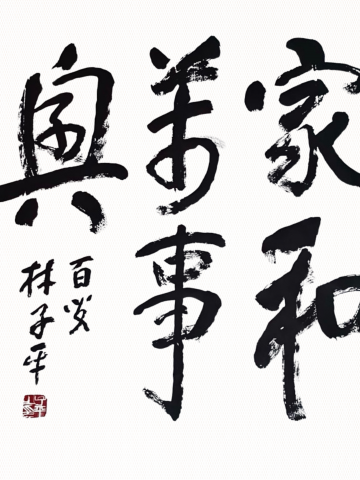 家和
萬事
興
百岁
林子平